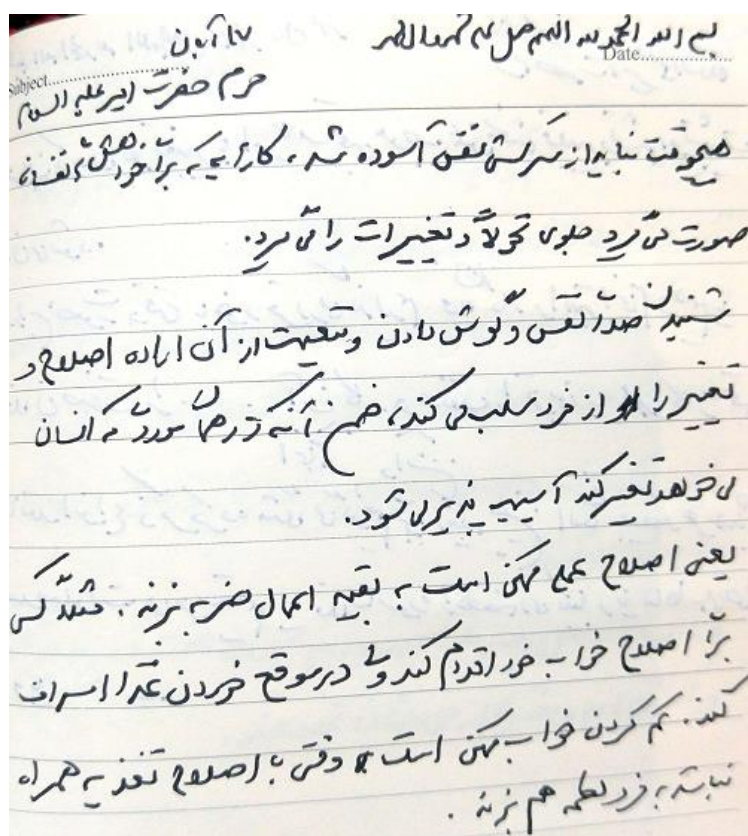 بسم الله الحمدلله اللهم صل علی محمد و آل محمد ۱۷ آبان
Subject.................... Date...............
حرم حضرت امیر علیه السلام
هیچوقت نباید از سرکشی نفس آسوده شد، کارهایی که برای خواهش های نفسانی
صورت می گیرد جلوی تحولات و تغییرات را می گیرد.
شنیدن صدای نفس و گوش دادن و تبعیت از آن اراده اصلاح و
تغییر را از فرد سلب می کند، ضمن آنکه در همان موردی که انسان
می خواهد تغییر کند آسیب پذیر می شود.
یعنی اصلاح عملی ممکن است به بقیه اعمال ضربه بزند. مثلا کسی
برای اصلاح خواب خود اقدام کند ولی در موقع خوردن غذا اسراف
کند. کم کردن خواب ممکن است وقتی با اصلاح تغذیه همراه
نباشد به فرد لطمه هم بزند.